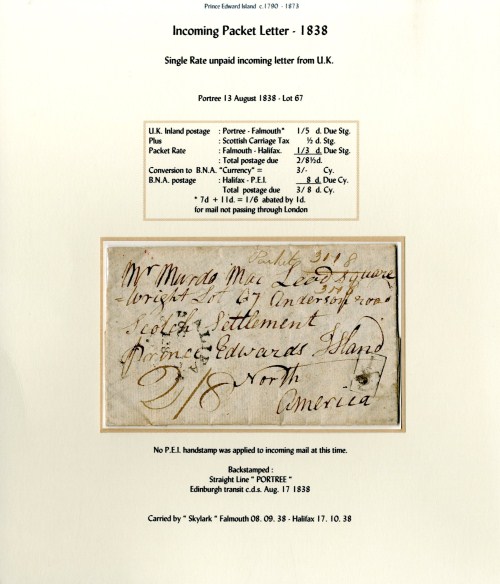 Prince Edward Island c.1790 - 1873
Incoming Packet Letter - 1838
Single Rate unpaid incoming letter from U.K.
Portree 13 August 1838 - Lot 67
U.K. Inland postage : Portree - Falmouth* 1/5 d. Due Stg.
Plus : Scottish Carriage Tax ½ d. Stg.
Packet Rate : Falmouth - Halifax. 1/3 d. Due Stg.
: Total postage due 2/8½d.
Conversion to B.N.A. "Currency" = 3/- Cy.
B.N.A. postage : Halifax - P.E.I. 8 d. Due Cy.
Total postage due 3/ 8 d. Cy.
* 7d + 11d. = 1/6 abated by 1d.
for mail not passing through London
Packet
Mr Murdo Mac Leod Square
-wright Lot 67 Anderson road
Scotch Settlement
Prince Edwards Island
North
America
2/8
HALIFA
No P.E.I. handstamp was applied to incoming mail at this time.
Backstamped :
Straight Line " PORTREE "
Edinburgh transit c.d.s. Aug. 17 1838
Carried by " Skylark " Falmouth 08. 09. 38 - Halifax 17. 10. 38